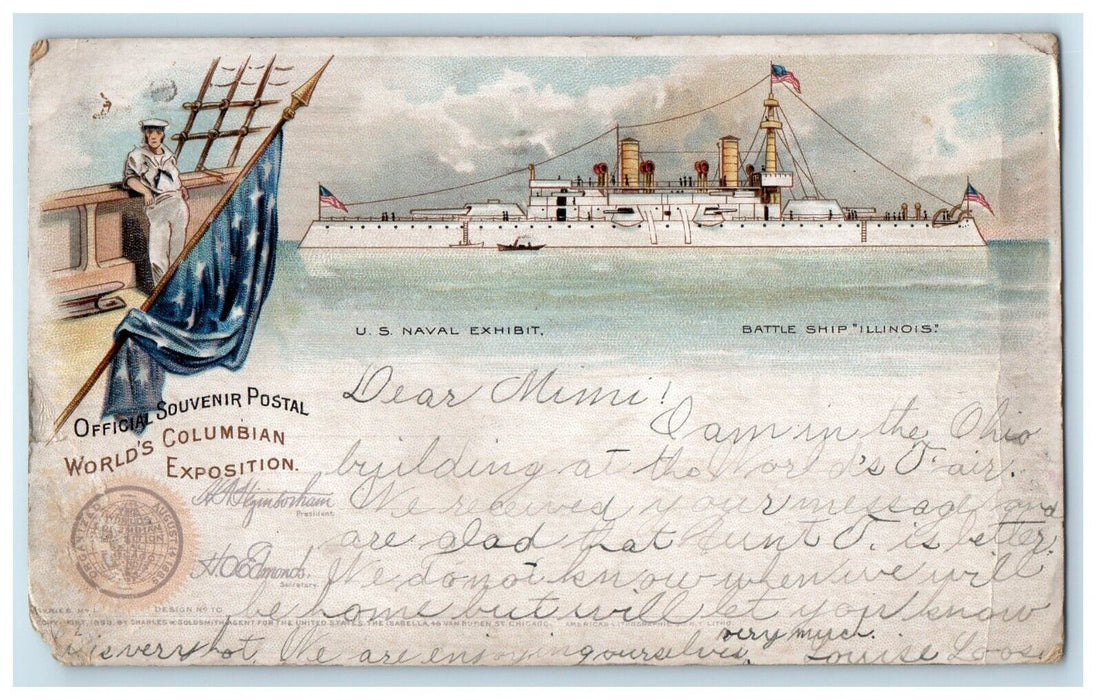 U. S. NAVAL EXHIBIT.
BATTLE SHIP "ILLINOIS."
OFFICIAL SOUVENIR POSTAL
WORLD'S COLUMBIAN
EXPOSITION.
President.
H. O. Edmonds.
Secretary.
DESIGN No 10
1893, BY CHARLES W. GOLDSMITH AGENT FOR THE UNITED STATES, THE ISABELLA, 46 VAN BUREN ST. CHICAGO.
Dear Mimi!
I am in the Ohio
building at the World's Fair.
We received your message and
are glad that Aunt J. is better.
We do not know when we will
be home but will let you know
is very hot. We are enjoying ourselves very much.
Louise